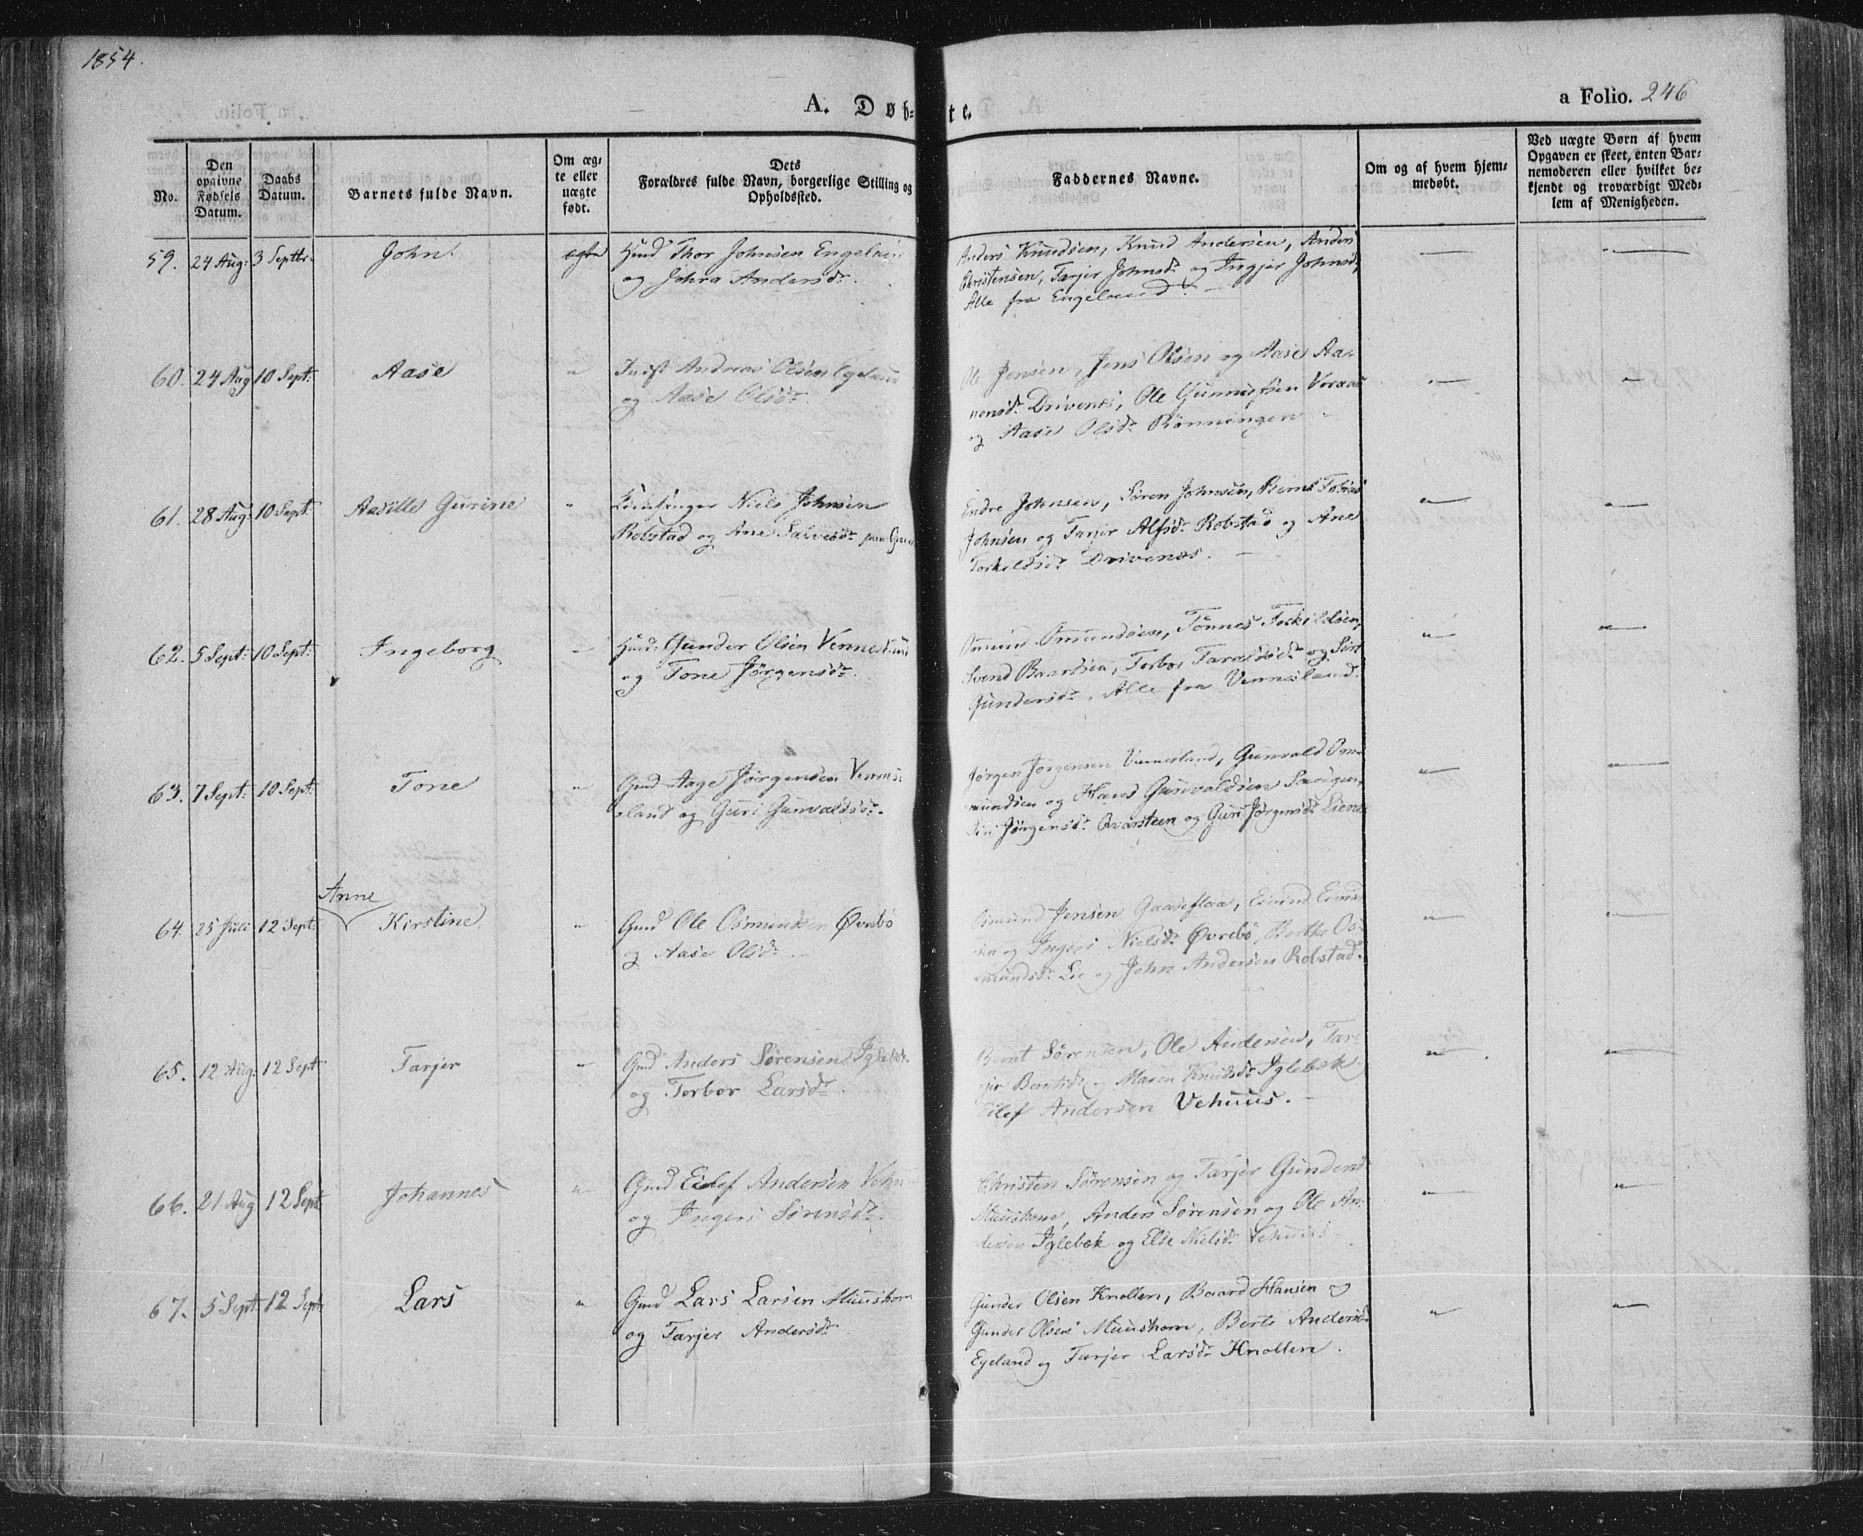 1854.
A. Døb-
te.
a Folio. 246
No.
Den opgivne Fødsels Datum.
Daabs Datum.
Barnets fulde Navn.
Om ægte eller uægte født.
Dets Forældres fulde Navn, borgerlige Stilling og Opholdssted.
Faddernes Navne.
Om og af hvem hjemmedøbt.
Ved uægte Børn af hvem Opgaven er skeet, enten Barnemoderen eller hvilket bekjendt og troværdigt Medlem af Menigheden.
59. 24 Aug: 3 Septbr. John. ægte
Thor Johnsen
og Andersdr.
Anders Knudsen, Knud Andersen, Anders
Christensen, Tarjer Johnsdr og Ingjer Johnsd,
Alle fra Engeland. —
60. 24 Aug 10 Sept: Aase "
Andreas Olsen Egeland
og Aase Olsdr.
Ole Jensen, Jens Olsen og Aase Aa-
nensdr Drivenes, Ole Gunnufsen
og Aase Olsdr Rønningen
61. 28 Aug: 10 Sept. Aasille Gurine "
Niels Johnsen
Robstad og Ane Salvesdr
Endre Johnsen, Søren Johnsen, Tobias
Johnsen og Tarjer Alfsdr Robstad og Ane
Torkeldsdr Drivenæs. —
62. 5 Sept: 10 Sept: Ingeborg "
Gunder Olsen
og Tone Jørgensdr.
Omund Omundsen, Tønnes Torkildsen,
Svend Baardsen, Torbor og Siri
Gundersdr. Alle fra Vennesland.
63. 7 Sept: 10 Sept: Tone "
Gmd Aage Jørgensen Vennes-
land og Guri Gunvaldsdr.
Jørgen Jørgensen Vennesland, Gunvald Os-
mundsen og Hans Gunvaldsen
Siri Jørgensdr Qvarsteen og Guri Jørgensdr
Anne
64. 25 Juli 12 Sept: Kirstine "
Gmd Ole Osmundsen Øvrebø
og Aase Olsdr.
Osmund Jensen Gaaseflaa, Eivind Eivind-
sen og Ingeri Nielsdr Øvrebø, Berthe Os-
mundsdr Lie og John Andersen Robstad.
65. 12 Aug: 12 Sept Tarjer "
Gmd Anders Sørensen Iglebæk
og Torbor Larsdr.
Berent Sørensen, Ole Andersen, Tar-
jer Berntsdr og Maren Knudsdr Iglebæk
Eilef Andersen Vehuus. —
66. 21 Aug 12 Sept Johannes "
Gmd Eilef Andersen
og Ingeri Sørensdr.
Christen Sørensen og Tarjer Gundersd
Muushom, Anders Sørensen og Ole An-
dersen Iglebæk og Else Nielsdr Vehuus
67. 5 Sept 12 Sept: Lars "
Gmd Lars Larsen Muushom
og Tarjer Andersdr.
Gunder Olsen Knollen, Baard Hansen og
Gunder Olsen Muushom, Berte Andersd
Egeland og Tarjer Larsdr Knollen.